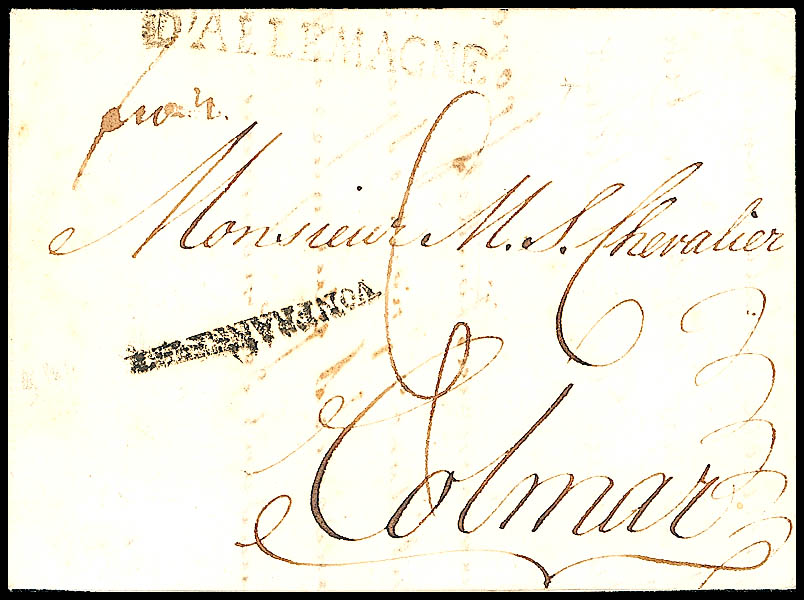 D'ALLEMAGNE
Monsieur M. S. Chevalier
Colmar